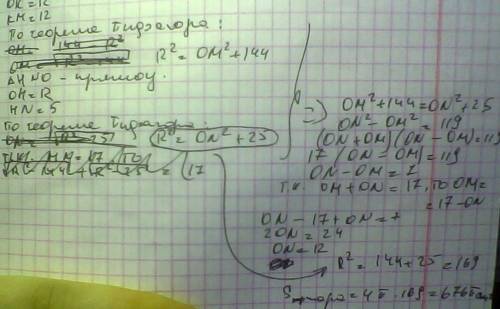 OK = 12
KM = 12
По теореме Пифагора:
R² = OM² + 144
ΔHNO - прямоу.
OH = R
HN = 5
По теореме Пифагора:
R² = ON² + 25
=> OM² + 144 = ON² + 25
ON² - OM² = 119
(ON + OM)(ON - OM) = 119
17 (ON - OM) = 119
ON - OM = 7
т.к. OM + ON = 17, то OM =
= 17 - ON
ON - 17 + ON = 7
2ON = 24
ON = 12
R² = 144 + 25 = 169
= 4π · 169 = 676π